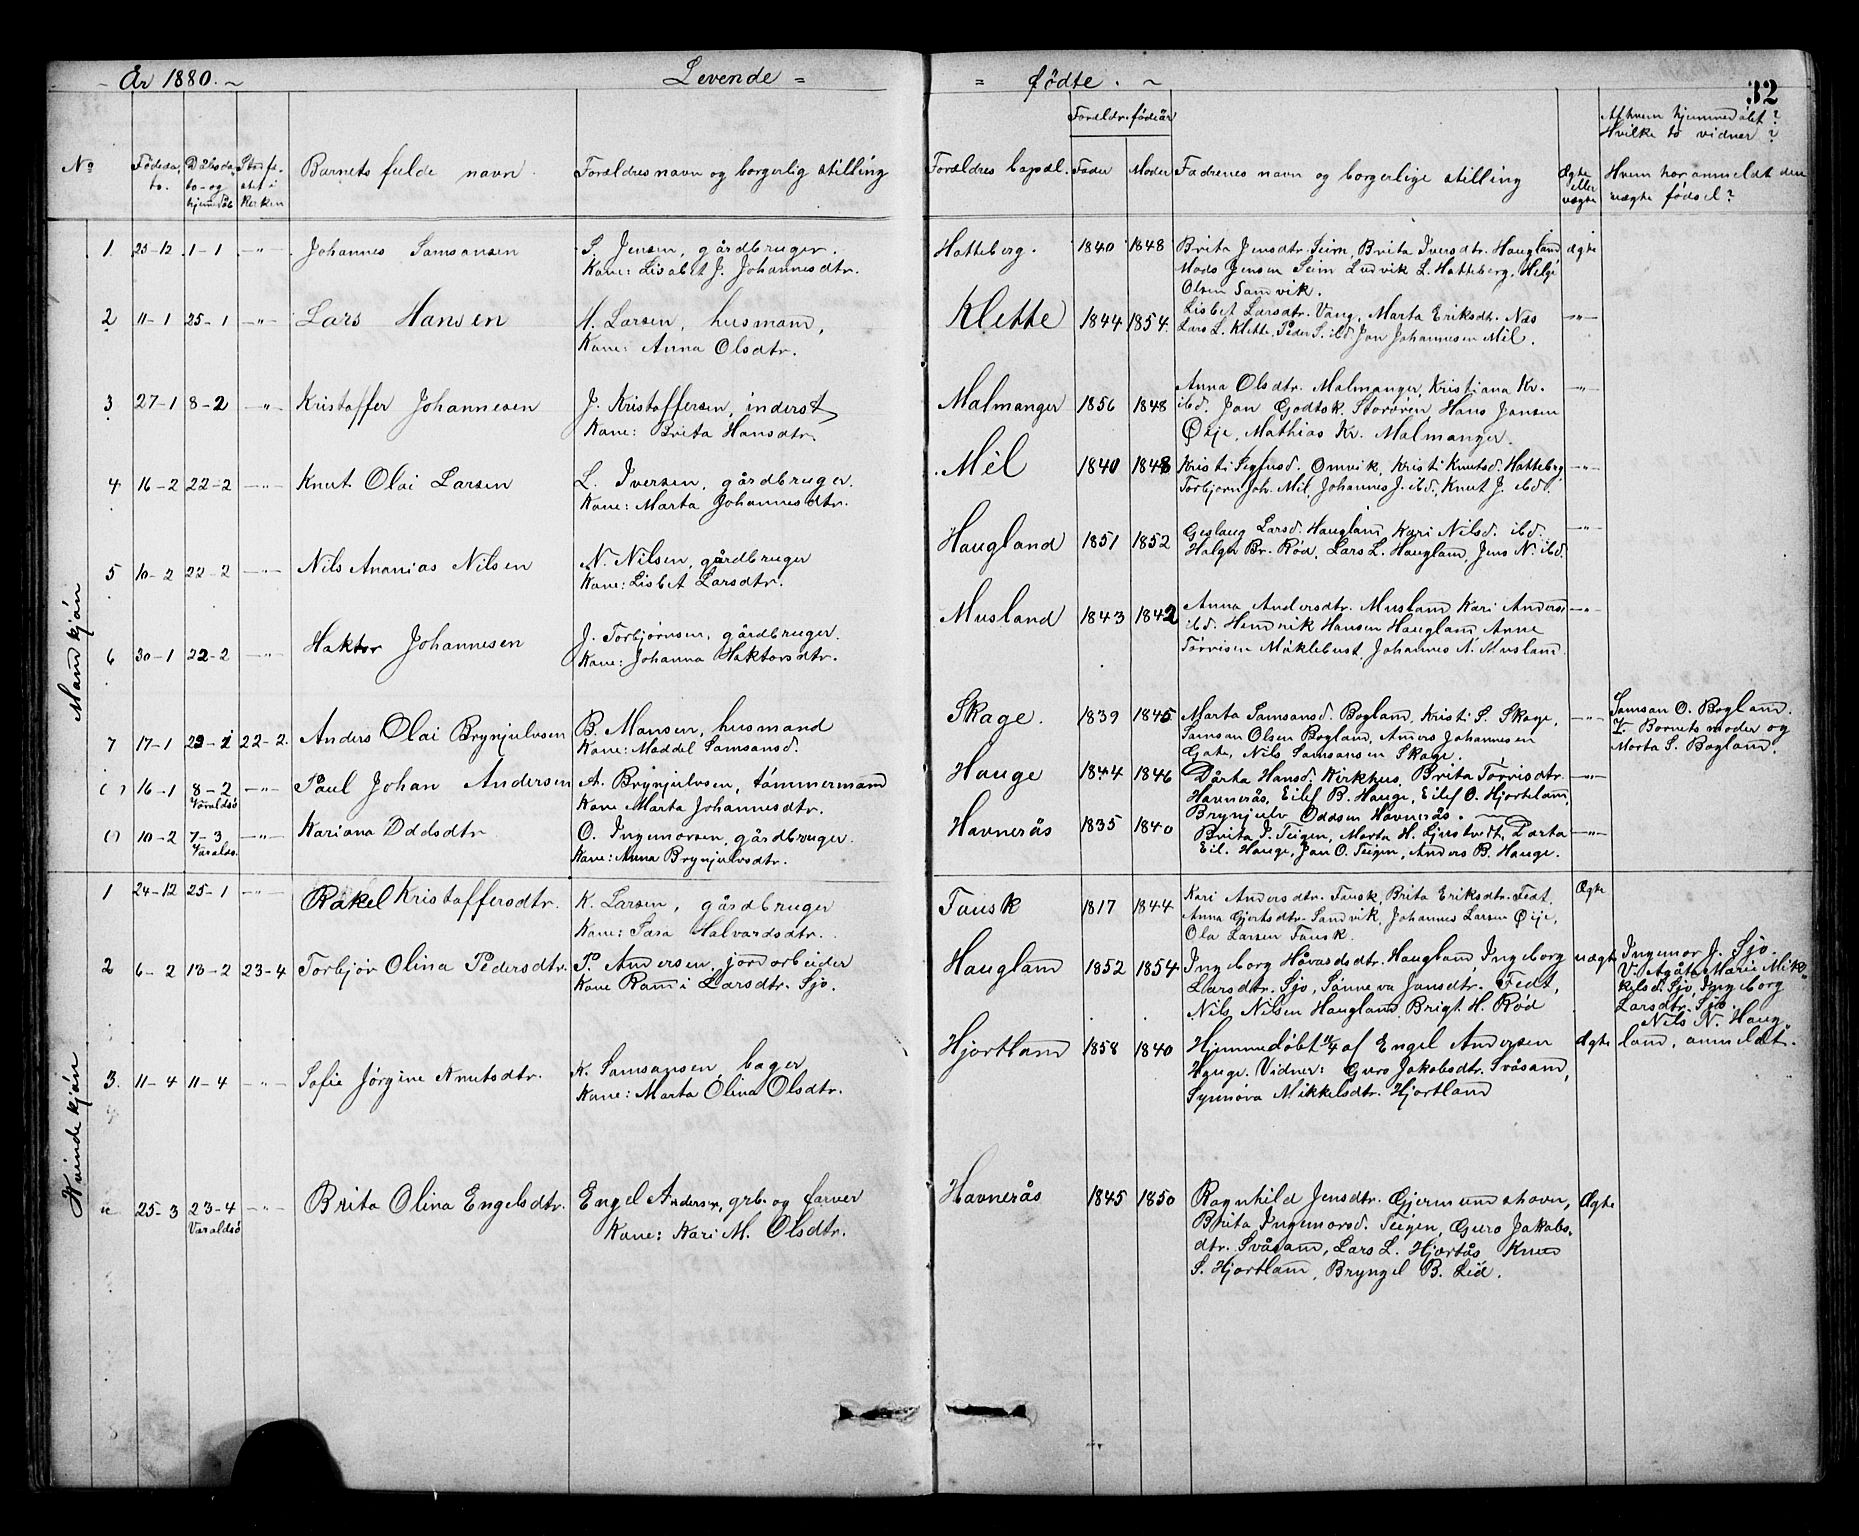 År 1880. Levende = = fødte.
32
Forældr. fødeår
Af hvem hjemmedøbt?
Hvilke to vidner?
No Fødeda- to. Dåbsda- to og hjemdåb Stadfæ- stet i kerken Barnets fulde navn. Forældres navn og borgerlig stilling Forældres bopæl. Fader Moder Fadrenes navn og borgerlige stilling Ægte eller uægte Hvem har anmeldt den uægte fødsel?
Mandkjøn
1 25-12 1-1 -"- Johannes Samsonsen S. Jensen, gårdbruger. Hatteberg. 1840 1848 Brita Jensdtr. Seim, Brita Iversdtr. Haugland ægte
Kone: Lisabet J. Johannesdtr. Mads Jensen Seim Ludvik L. Hatteberg, Helje
Olsen Samvik.
2 11-1 25-1 -"- Lars Hansen H. Larsen, husmand, Klette 1844 1854 Lisbet Larsdtr. Vång, Marta Eriksdt. Næs -"-
Kone: Anna Olsdtr. Lars L. Klette. Peder S. ibd. Jon Johannesen Mél.
3 27-1 8-2 -"- Kristoffer Johannesen J. Kristoffersen, inderst Malmanger 1856 1848 Anna Olsdtr. Malmanger, Kristiana Kr. -"-
Kone: Brita Hansdtr. ibd. Jon Godtsk. Storøren Hans Jonsen
Øije, Mathias Kr. Malmanger.
4 16-2 22-2 -"- Knut Olai Larsen L. Iversen, gårdbruger. Mél 1840 1848 Kristi Omvik, Kristi Knutsd. Hatteberg -"-
Kone: Marta Johannesdtr. Torbjørn Joh. Mél, Johannes J. ibd., Knut J. ibd.
5 10-2 22-2 -"- Nils Ananias Nilsen N. Nilsen, gårdbruger Haugland 1851 1852 Geslaug Larsd. Haugland, Kari Nilsd. ibd. -"-
Kone: Lisbet Larsdtr. Halgr Br. Rød, Lars L. Haugland, Jens N. ibd.
6 30-1 22-2 -"- Haktor Johannesen J. Torbjørnsen, gårdbruger. Musland 1843 1842 Anna Andersdtr. Musland Kari Anders. -"-
Kone: Johanna Haktorsdtr. ibd. Hendrik Hansen Haugland, Anne
Tørrisen Møklebust, Johannes A. Musland
7 17-1 29-1 22-2. Anders Olai Brynjulvsen B. Monsen, husmand Skage. 1839 1845 Marta Samsonsd. Bogland, Kristi S. Skage, -"- Samson O. Bogland.
Kone: Maddel Samsonsd. Samson Olsen Bogland, Anders Johannesen V. Barnets moder og
Gate, Nils Samsonsen Skage. Marta S. Bogland.
( ) 16-1 8-2 -"- Paul Johan Andersen A. Brynjulvsen, tømmermand Hauge 1844 1846 Dårta Hansd. Kirkhus, Brita Tørrisdtr. -"-
Varaldsö Kone Marta Johannesdtr. Havnerås, Eilef B. Hauge, Eilef O. Hjortland,
Brynjulv Oddsen Havnerås.
( ) 10-2 7-3 -"- Kariana Oddsdtr O. Ingemorsen, gårdbruger. Havnerås 1835 1840 Brita I. Teigen, Marta H. , Dorta -"-
Varaldsö. Kone: Anna Brynjulvsdtr. Eil. Hauge, Jon O. Teigen, Anders B. Hauge.
Kvindekjøn
1 24-12 25-1 -"- Råkel Kristoffersdtr. K. Larsen, gårdbruger Tausk 1817 1844 Kari Andersdtr. Tausk, Brita Eriksdtr. Fedt, Ægte
Kone: Sara Halvardsdtr. Anna Gjertsdtr. Sandvik, Johannes Larsen Øije,
Ola Larsen Tausk.
2 6-2 13-2 23-4 Torbjør Olina Pedersdtr. P. Andersen, jordarbeider Haugland 1852 1854 Ingeborg Håvardsdtr. Haugland, Ingeborg uægte Ingemor J. Sjo.
Kone Rami Larsdtr. Sjo. Larsdtr. Sjo, Sønneva Jonsdtr. Fedt, V. Agåte Marie Mik-
Nils Nilsen Haugland. Brigt H. Rød kelsd. Sjo, Ingeborg
Larsdtr. Sjo.
Nils N. Haug-
3. 11-4 11-4 -"- Sofie Jørgine Knutsdtr. K. Samsonsen, bager Hjortland 1858 1840 Hjemmedøbt 11/4 af Engel Andersen Ægte land, anmeldt.
Kone: Marta Olina Olsdtr. Hauge. Vidner: Guro Jakobsdtr. Svåsand,
Synnøva Mikkelsdtr. Hjortland
25-3 23-4 -"- Brita Olina Engelsdtr. Engel Andersen, grb. og farver Havnerås 1845 1850 Ragnhild Jensdtr. Gjermundshavn, Ægte
Varaldsö Kone: Kari M. Olsdtr. Brita Ingemorsd. Teigen, Guro Jakobs-
dtr. Svåsand, Lars L. Hjortås Knud
S. Hjortland, Bryngel B. Lid.